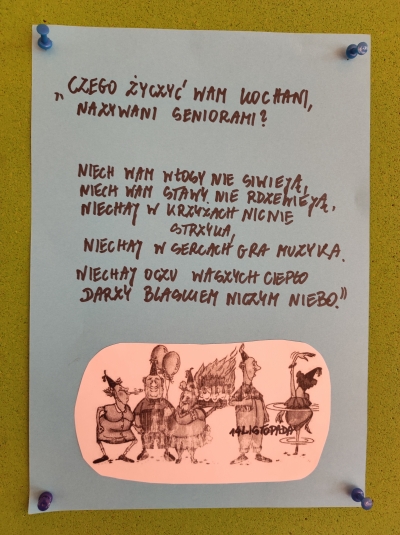 „CZEGO ŻYCZYĆ WAM KOCHANI,
NAZYWANI SENIORAMI?
NIECH WAM WŁOSY NIE SIWIEJĄ,
NIECH WAM STAWY NIE RDZEWIEJĄ,
NIECHAJ W KRZYŻACH NIC NIE
STRZYKA,
NIECHAJ W SERCACH GRA MUZYKA.
NIECHAJ OCZU WASZYCH CIEPŁO
DARZY BLASKIEM NICZYM NIEBO."
14 LISTOPADA